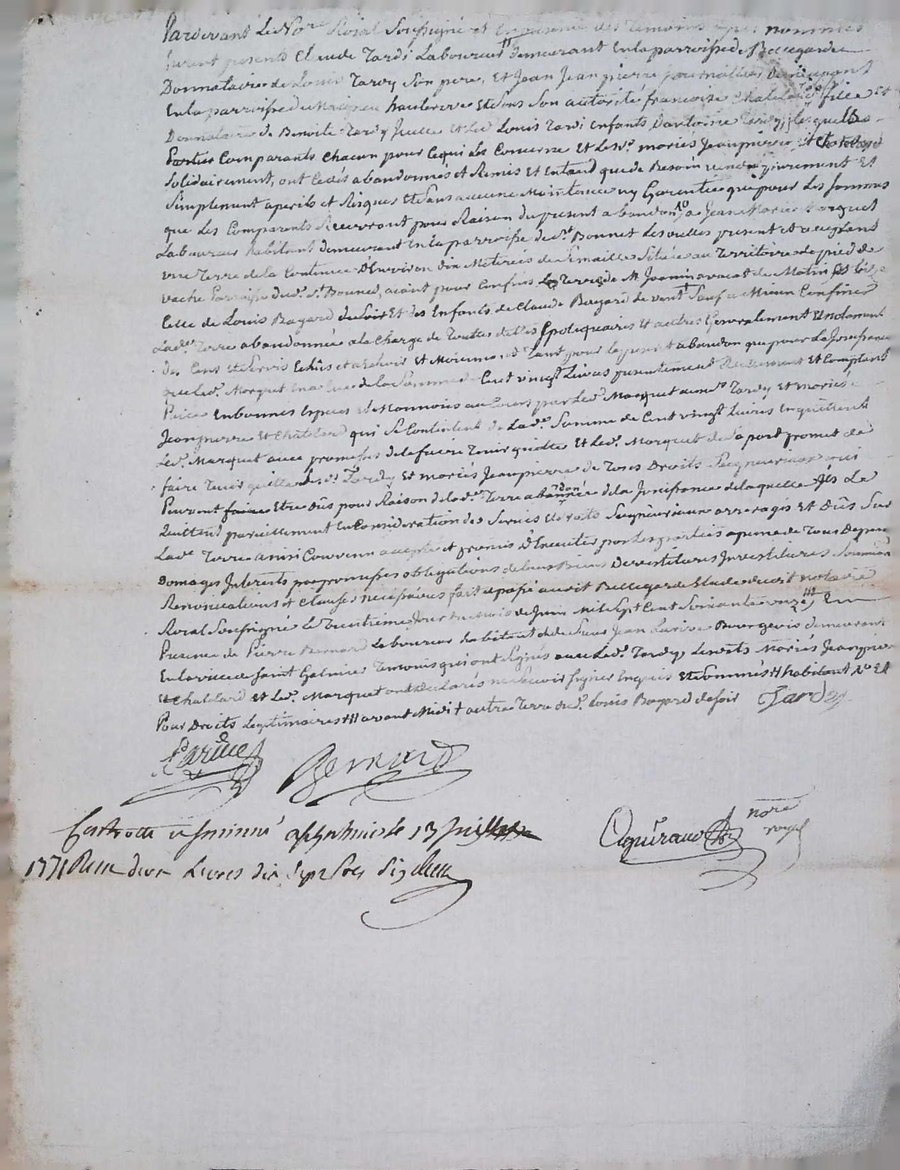 Pardevant Le No.re Roial Soussigné et En presence des temoins apres nommés
furent presents Claude Tardi Laboureur demeurant En la parroisse de Bellegarde
Donnataire de Louis Tardy Son pere, Et Jean Jeanpierre journallier demeurant
En la parroisse de hauterive Et sous Son autorité françoise Chatelard fille Et
Donnataire de Benoite Tardy Et led. Louis Tardi Enfants D'antoine Tardy, lesquelles
Parties Comparants Chacun pour Ce qui Les Concerne et Les d. mariés Jeanpierre Et Chatelard
Solidairement, ont Cedés abandonnés et Remis Et Entand que de Besoin vendu purement Et
Simplement a perils et Risques Et Sans aucune Maintenue ny Garentie que pour Les sommes
que Les Comparants Recevront pour Raison du present abandon, a Jean Marie Marquet
Laboureur habitant demeurant En la parroisse de St Bonnet Les oulles present et acceptant
une Terre de la Contenue D'Environ dix Métérées Située au Territoire de pied de
vache Parroisse dud. St Bonnet, aiant pour Confins La Terre de Mr Jeannin avocat de Matin
Celle de Louis Bayard de Soir Et des Enfants de Claude Bayard de vent Sauf a Mieux Confiner
Lad. Terre abandonnée a la Charge de Toutes dettes hypotequaires Et autres Generalement Et notament
des Cens et Servis Echus et a Echoir Et Moienant Tant pour le present abandon que pour La Jouissance
que led. Marquet de la Somme de Cent vingt Livres presentement Reellement Et Comptant
Paiée En bonnes Especes Et Monnoies au Cours par Led. Marquet auxd. Tardy Et mariés
Jeanpierre Et Chatelard qui Se Contentent de Lad. Somme de Cent vingt Livres En quittent
Led. Marquet avec promesse de le faire Tenir quitte Et Led. Marquet de Sa part promet de
faire Tenir quitte Lesd. Tardy Et mariés Jeanpierre de Tous Droits Seigneuriaux qui
Peuvent Etre Dus pour Raison de lad. Terre abandonnée de la Jouissance de laquelle ils Le
Quittent pareillement En Consideration des Servis Et droits Seigneuriaux arreragés Et Dus Sur
Lad. Terre ainsi Convenu accepté et promis D'Executer par les parties a peine de Tous Depens
Domages Interets par promesses obligations de leurs Biens Devestitures Investitures Soumissions
Renonciations et Clauses Necessaires fait et passé audit Bellegarde Etude dudit notaire
Roial Soussigné Le Trentieme Jour du Mois de Juin Mil Sept Cent Soixante onze, En
Presence de Pierre Bernard Laboureur habitant dud. lieu Jean Larive Bourgeois demeurant
En la ville de Saint Galmier Temoins qui ont Signés avec Led. Tardy, Lesdits Mariés Jeanpierre
Et Chatelard Et Led. Marquet ont Declarés ne Scavoir Signer Enquis Et Sommés
Pour Droits Legitimaires avant Midi autre Terre dud. Louis Bayard de soir Tardy
Larive Bernard
Controlé a St Galmier le 13 juillet
1771 Reçu deux Livres dix Sept Sols Six deniers
nore royal